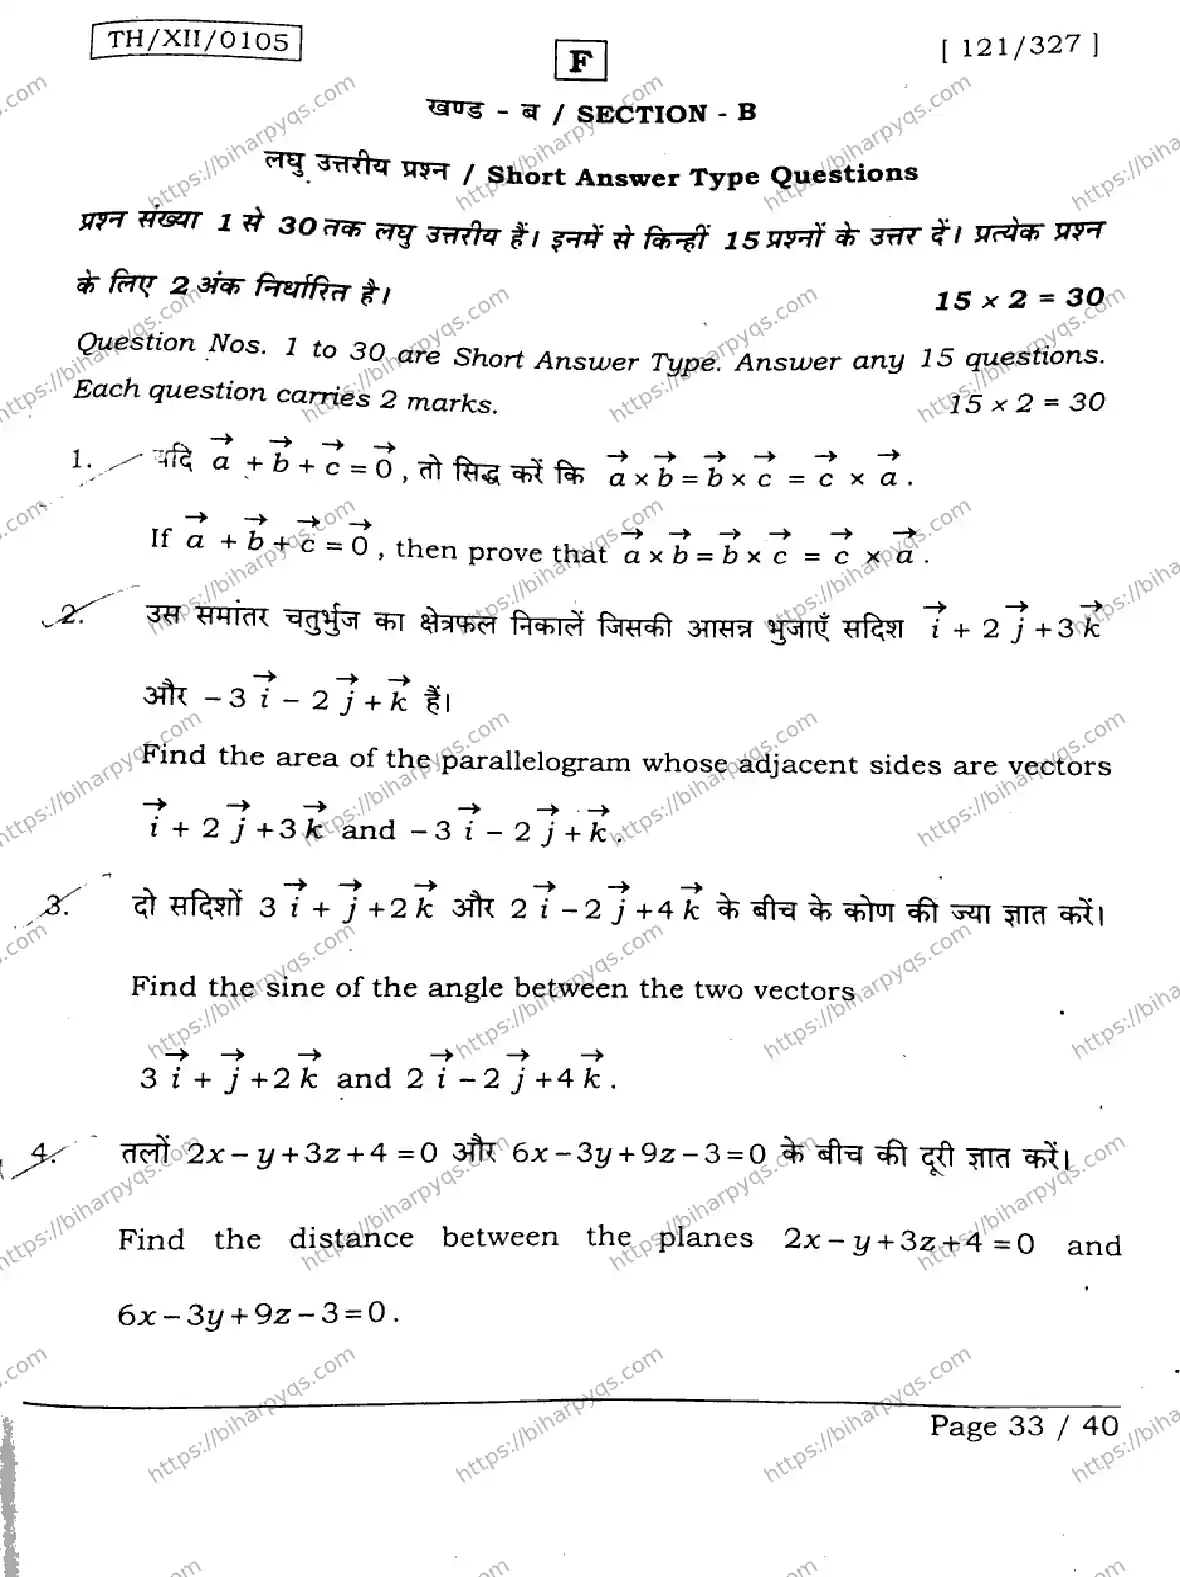 TH/XII/0105
F
[ 121/327 ]
खण्ड - ब / SECTION - B
लघु उत्तरीय प्रश्न / Short Answer Type Questions
प्रश्न संख्या 1 से 30 तक लघु उत्तरीय हैं। इनमें से किन्हीं 15 प्रश्नों के उत्तर दें। प्रत्येक प्रश्न
के लिए 2 अंक निर्धारित है। 15 × 2 = 30
Question Nos. 1 to 30 are Short Answer Type. Answer any 15 questions.
Each question carries 2 marks. 15 × 2 = 30
1. यदि $\vec{a} + \vec{b} + \vec{c} = \vec{0}$, तो सिद्ध करें कि $\vec{a} \times \vec{b} = \vec{b} \times \vec{c} = \vec{c} \times \vec{a}$.
If $\vec{a} + \vec{b} + \vec{c} = \vec{0}$, then prove that $\vec{a} \times \vec{b} = \vec{b} \times \vec{c} = \vec{c} \times \vec{a}$.
2. उस समांतर चतुर्भुज का क्षेत्रफल निकालें जिसकी आसन्न भुजाएँ सदिश $\vec{i} + 2\vec{j} + 3\vec{k}$
और $-3\vec{i} - 2\vec{j} + \vec{k}$ हैं।
Find the area of the parallelogram whose adjacent sides are vectors
$\vec{i} + 2\vec{j} + 3\vec{k}$ and $-3\vec{i} - 2\vec{j} + \vec{k}$.
3. दो सदिशों $3\vec{i} + \vec{j} + 2\vec{k}$ और $2\vec{i} - 2\vec{j} + 4\vec{k}$ के बीच के कोण की ज्या ज्ञात करें।
Find the sine of the angle between the two vectors
$3\vec{i} + \vec{j} + 2\vec{k}$ and $2\vec{i} - 2\vec{j} + 4\vec{k}$.
4. तलों $2x - y + 3z + 4 = 0$ और $6x - 3y + 9z - 3 = 0$ के बीच की दूरी ज्ञात करें।
Find the distance between the planes $2x - y + 3z + 4 = 0$ and
$6x - 3y + 9z - 3 = 0$.
Page 33 / 40
https://biharpyqs.com